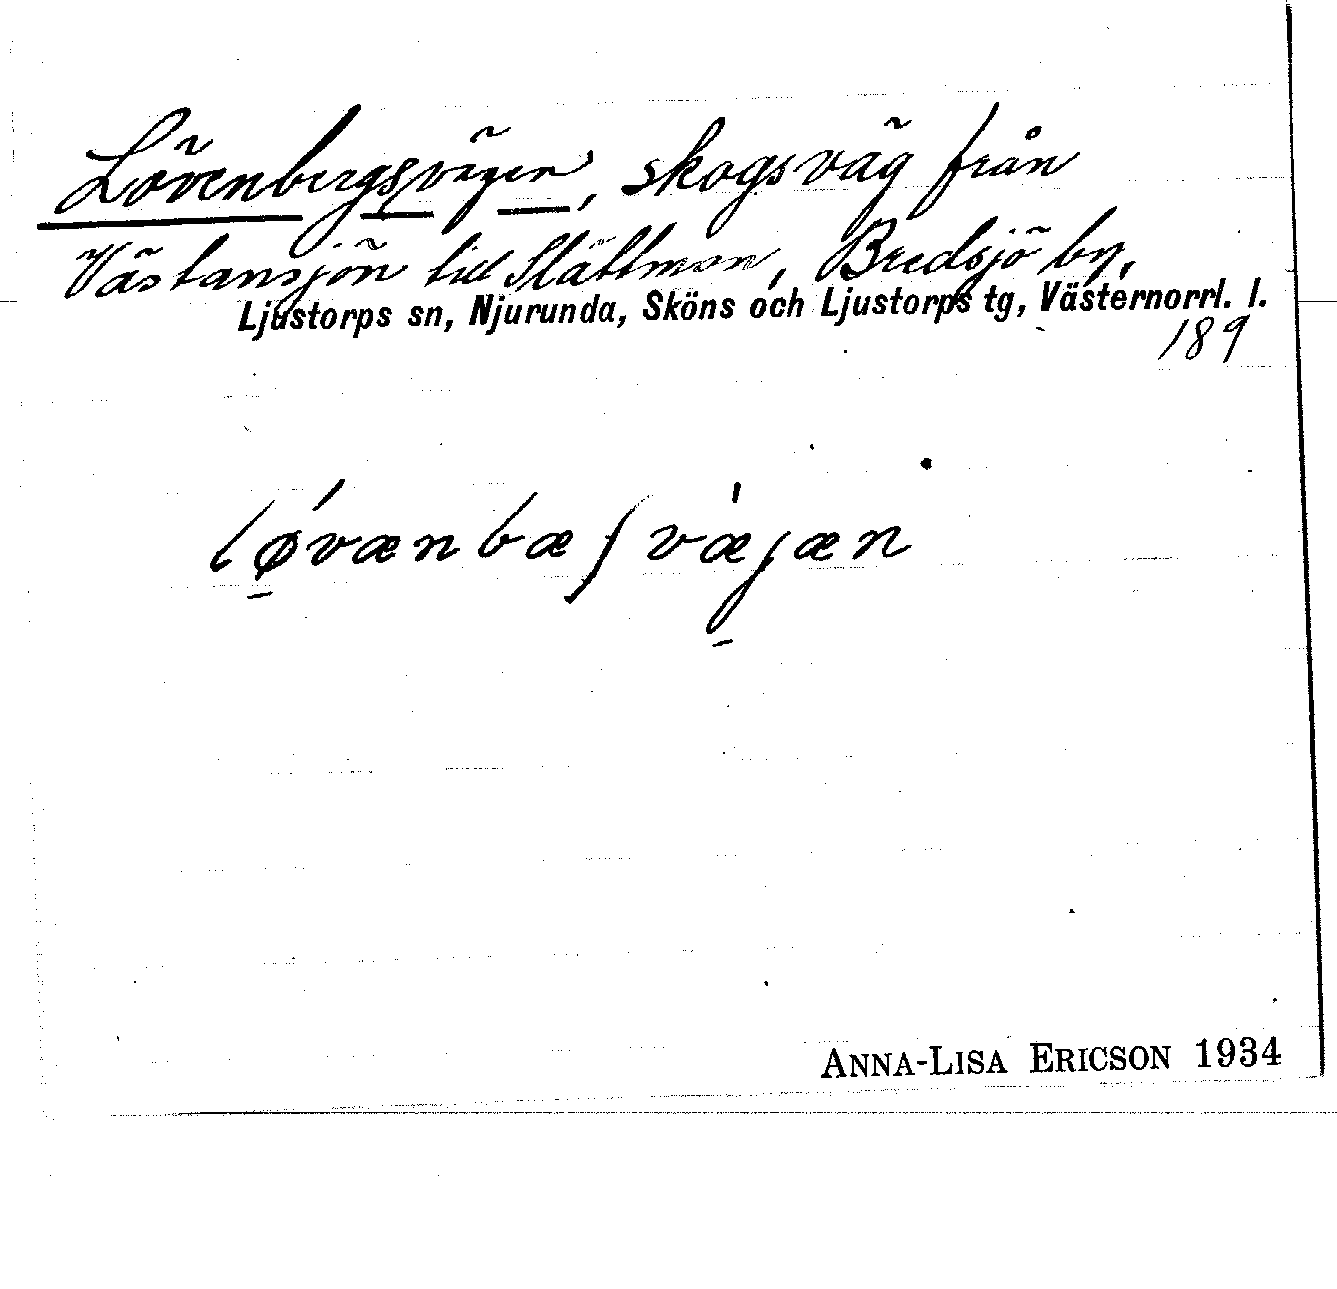 Lövenbergsvägen, skogsväg från
Västansjön till Slättmon, Bredsjö by,
Ljustorps sn, Njurunda, Sköns och Ljustorps tg, Västernorrl. l.
189
lǿvænbæʃvæ̀jæn
ANNA-LISA ERICSON 1934